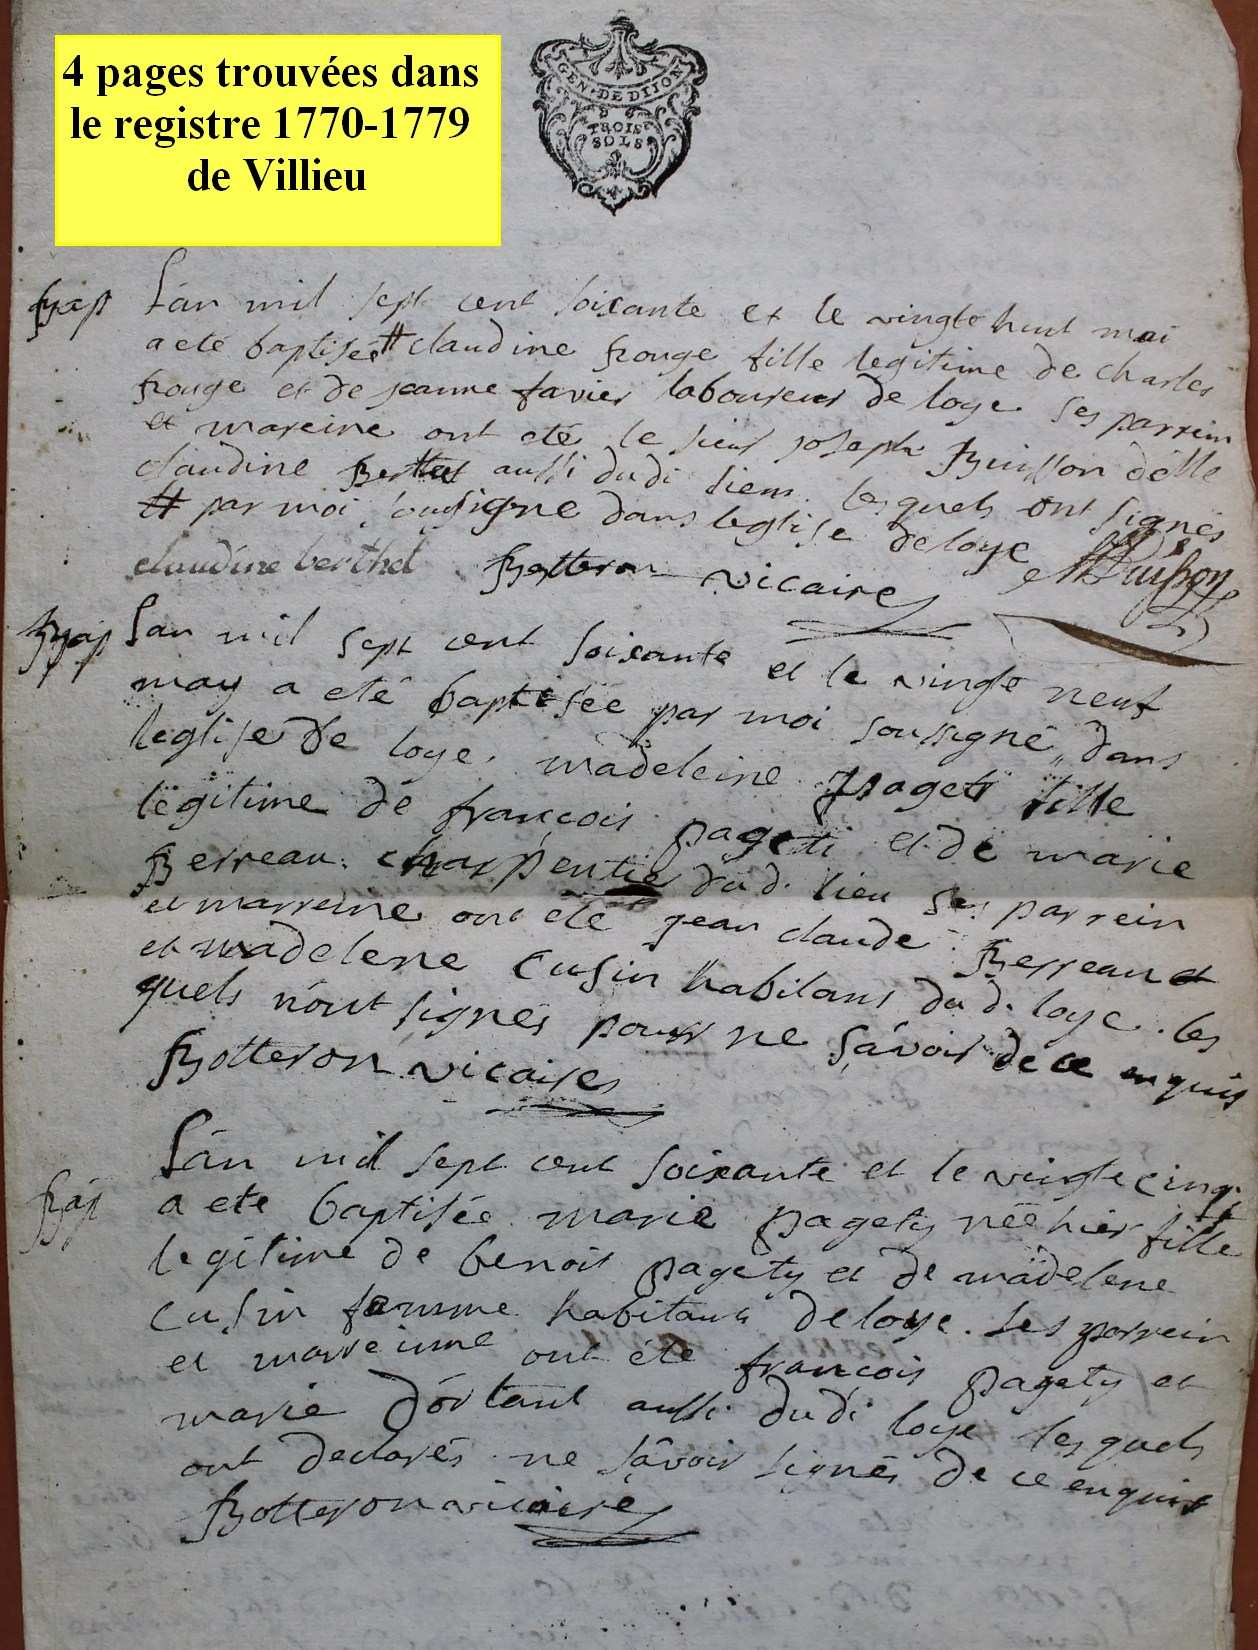 4 pages trouvées dans
le registre 1770-1779
de Villieu
GEN. DE DIJON
TROIS
SOLS
Bap
L'an mil sept cent soixante et le vingt huit mai
a eté baptisée # claudine rouge fille legitime de charles
rouge et de jeanne favier laboureur de loye. Ses parrein
et mareine ont eté le sieur joseph Buisson delle
claudine Berthet aussi dudi lieu. lesquels ont signés
# par moi sousigne dans leglise de loye
claudine berthet Botteron vicaire Buisson
Bap
L'an mil sept cent soixante et le vingt neuf
may a eté baptisée par moi soussigné, dans
leglise de loye. madeleine pageti fille
légitime de françois pageti et de marie
Berreau. charpentie dud. lieu Ses parrein
et marreine ont eté jean claude Berreau et
et madelene Cusin habitans dud. loye. les
quels n'ont signés pour ne sávoir de ce enquis
Botteron vicaire
Bap
L'an mil sept cent soixante et le vingt cinq
a ete baptisée marie pagety née hier fille
legitime de benoit pagety et de madelene
Cusin famme habitans de loye. Ses parrein
et marreinne ont éte françois pagety et
marie dortant aussi dudi loye lesquels
ont declarés ne sávoir signés de ce enquis
Botteron vicaire